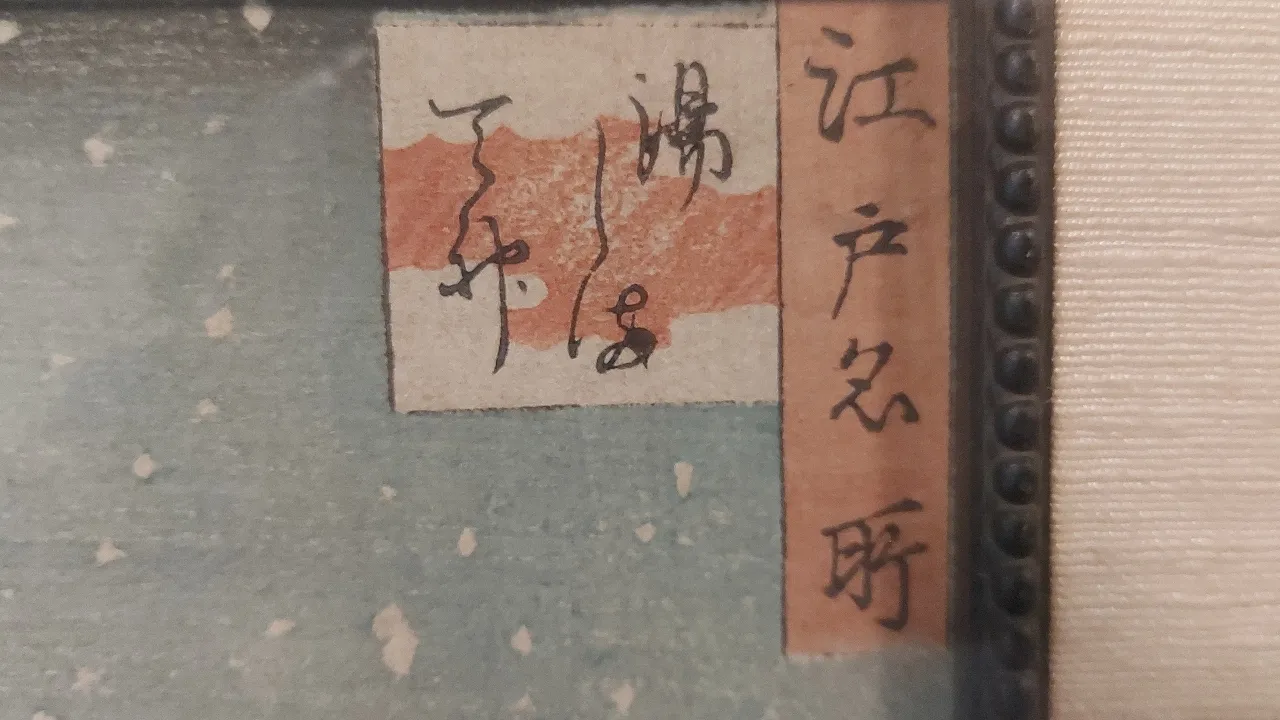 江戸名所
湯しま
天神